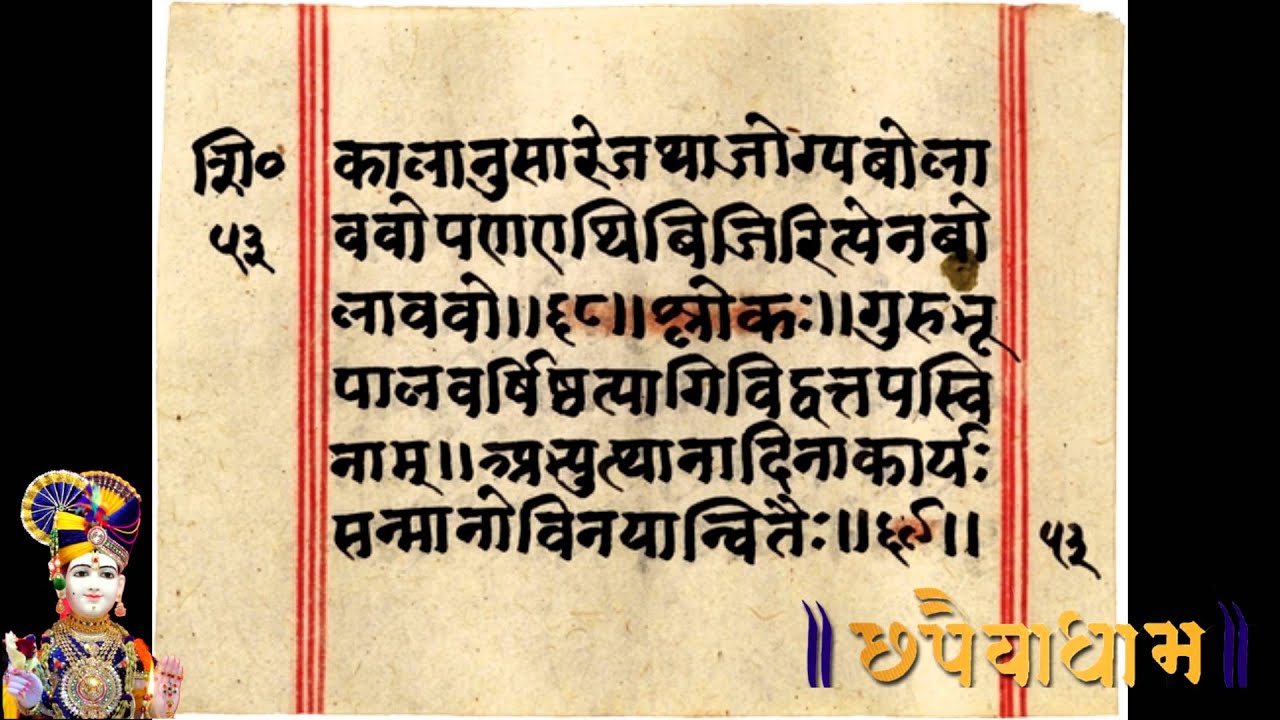 शि०
५३
कालानुसारेजथाजोग्यबोला
ववोपणएथिबिजिरित्येनबो
लाववो॥६८॥श्लोकः॥गुरुभू
पालवर्षिष्ठत्यागिविद्वत्तपस्वि
नाम्॥अभ्युत्थानादिनाकार्यः
सन्मानोविनयान्वितैः॥६९॥
५३
॥छपैयाधाम॥